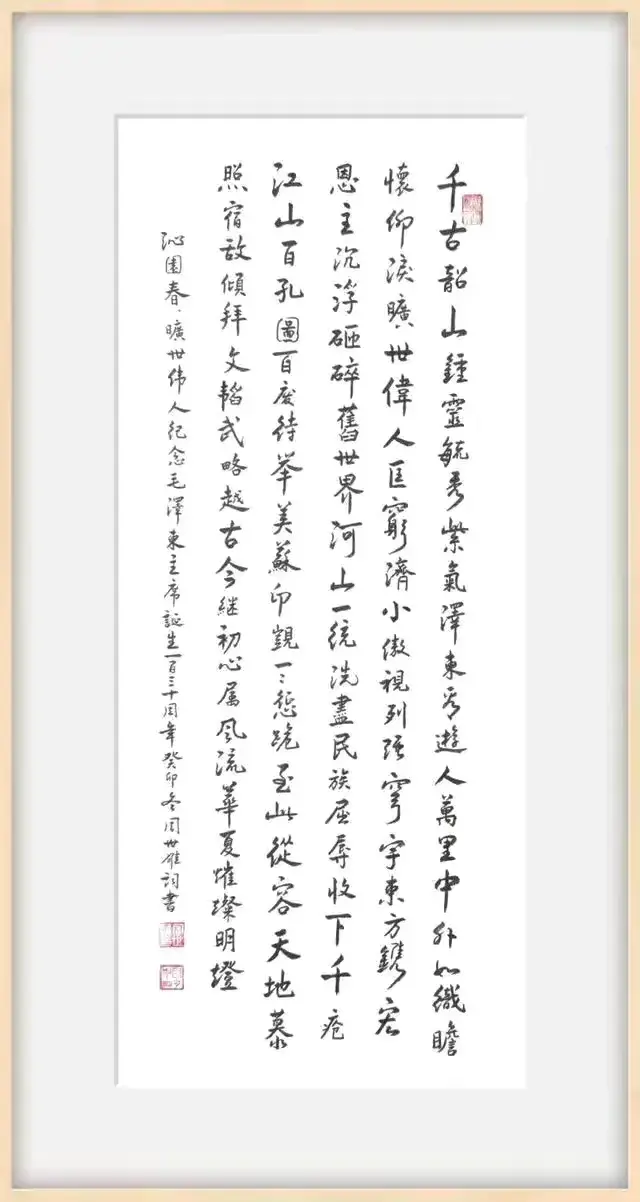 千古韶山鍾靈毓秀紫氣澤東看遊人萬里中外如織瞻
懷仰淚曠世偉人匡窮濟小傲視列强穹宇東方鐫宏
恩主沉浮砸碎舊世界河山一統洗盡民族屈辱收下千疮
江山百孔圖百废待举美蘇印覬一ミ惩跪至此從容天地慕
照宿敌傾拜文韬武略越古今継初心属風流華夏熣璨明燈
沁園春·曠世伟人纪念毛澤東主席誕生一百三十周年癸卯冬周世雄詞書